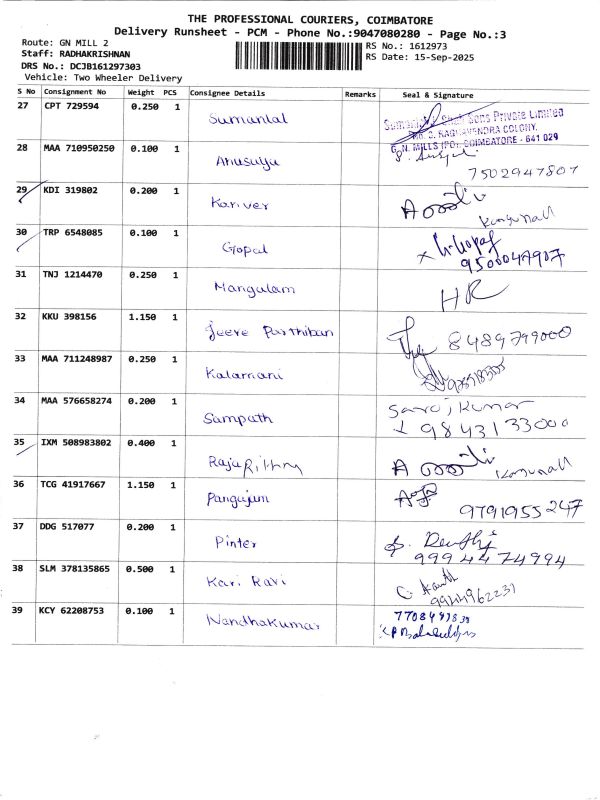 THE PROFESSIONAL COURIERS, COIMBATORE
Delivery Runsheet - PCM - Phone No.:9047080280 - Page No.:3
Route: GN MILL 2
RS No.: 1612973
Staff: RADHAKRISHNAN
RS Date: 15-Sep-2025
DRS No.: DCJB161297303
Vehicle: Two Wheeler Delivery
S No Consignment No Weight PCS Consignee Details Remarks Seal & Signature
27 CPT 729594 0.250 1 Sumanlal
Shah Sons Private Limited
RAGHAVENDRA COLONY,
G.N. MILLS (PO), COIMBATORE - 641 029
28 MAA 710950250 0.100 1 Anusuya
7502947807
29 KDI 319802 0.200 1 Kariver
30 TRP 6548085 0.100 1 Gopal
9500047907
31 TNJ 1214470 0.250 1 Mangulam HR
32 KKU 398156 1.150 1 Jeeve Parthiban 8489799000
33 MAA 711248987 0.250 1 Kalamani
34 MAA 576658274 0.200 1 Sampath Saroj kumar
9843133000
35 IXM 508983802 0.400 1 Raja Rithny
36 TCG 41917667 1.150 1 Pangajum
9791955247
37 DDG 517077 0.200 1 Pinter
9994474994
38 SLM 378135865 0.500 1 Kari Ravi
9944962231
39 KCY 62208753 0.100 1 Nandhakumar